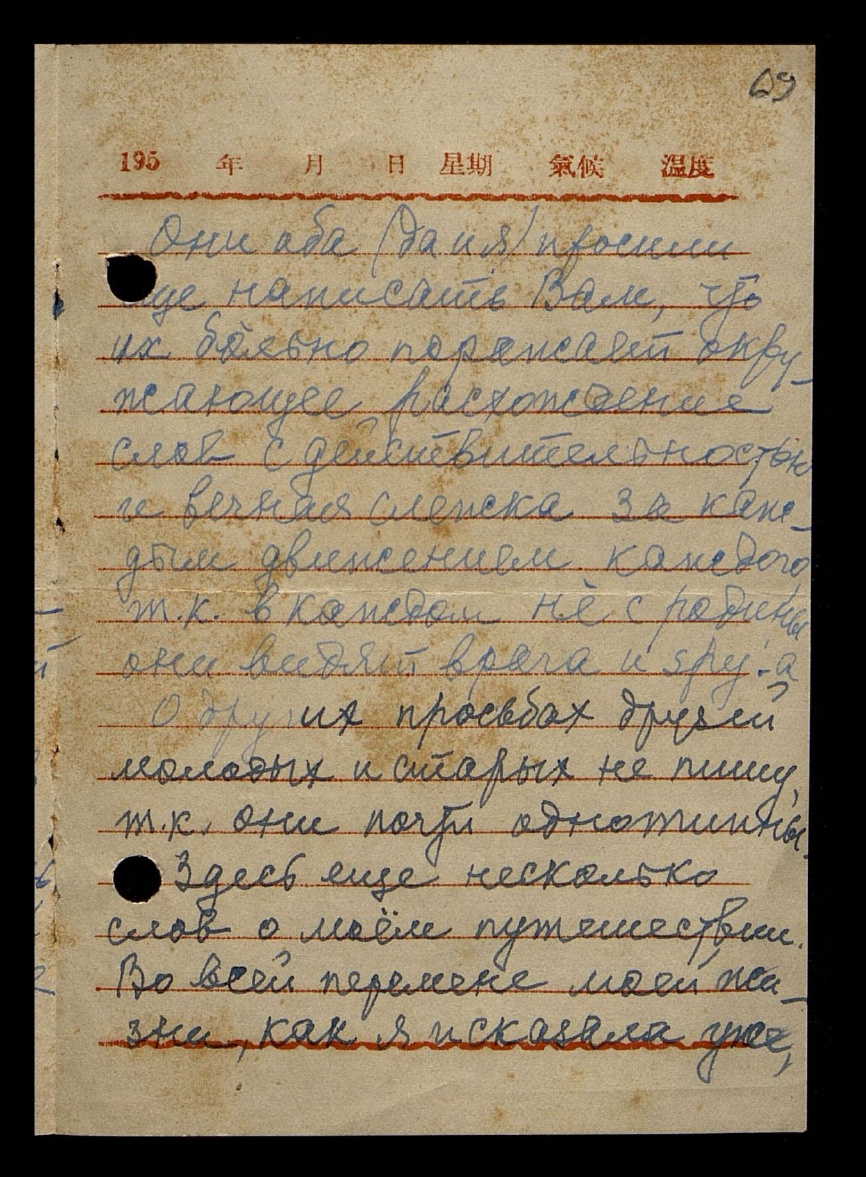 69
195 年 月 日 星期 氣候 溫度
Они оба (да и я) просили
еще написать Вам, что
их больно поражает окру-
жающее расхождение
слов с действительностью
и вечная слежка за каж-
дым движением каждого,
т.к. в каждом не с родины
они видят врага и
О других просьбах друзей
молодых и старых не пишу,
т.к. они почти однотипны.
Здесь еще несколько
слов о моём путешествии.
Во всей перемене моей жи-
зни, как я и сказала уже,